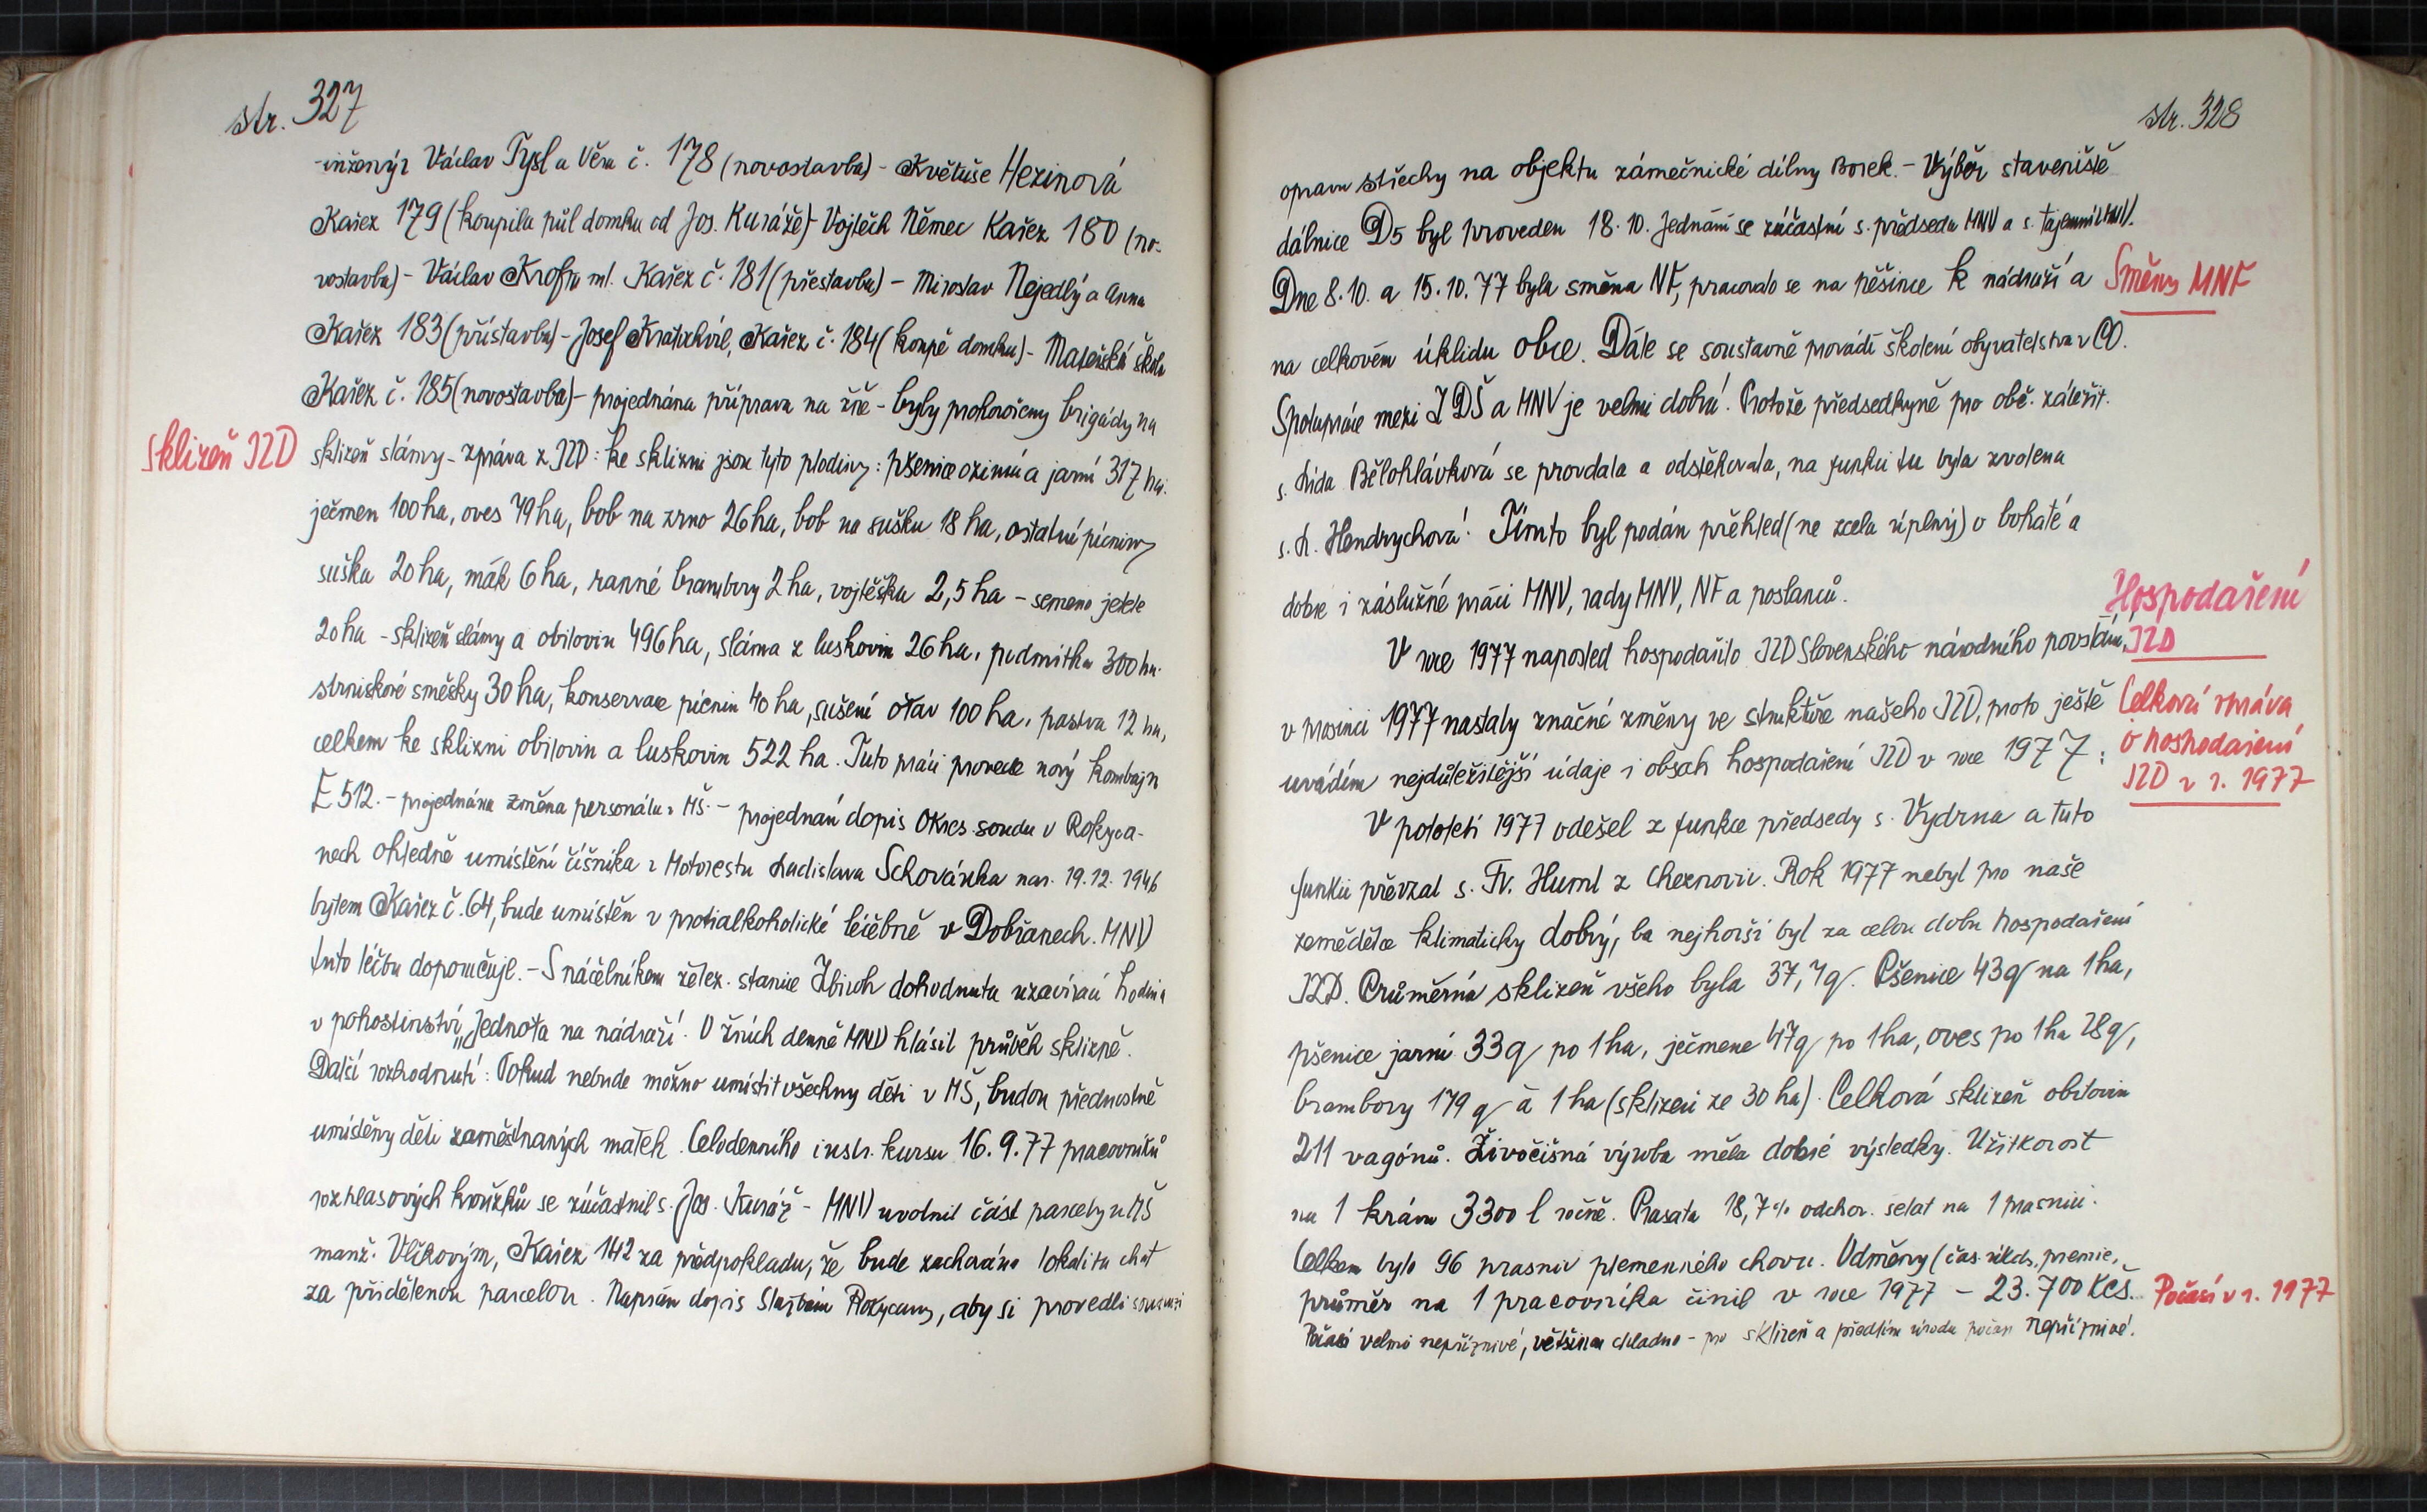 str. 327
-inženýr Václav Tysl a Věra č. 178 (novostavba) - Květuše Hezinová
Kařez 179 (koupila půl domku od Jos. Kuráže) - Vojtěch Němec Kařez 180 (no-
vostavba) - Václav Krofta ml. Kařez č. 181 (přestavba) - Miroslav Nejedlý a Anna
Kařez 183 (přístavba) - Josef Kratochvíl, Kařez č. 184 (koupě domku) - Mateřská škola
Kařez č. 185 (novostavba) - projednána příprava na žně - byly prohovořeny brigády na
Sklizeň JZD
sklizeň slámy - zpráva z JZD: ke sklizni jsou tyto plodiny: pšenice ozimá a jarní 317 ha.
ječmen 100 ha, oves 79 ha, bob na zrno 26 ha, bob na sušku 18 ha, ostatní pícniny
suška 20 ha, mák 6 ha, ranné brambory 2 ha, vojtěška 2,5 ha - semeno jetele
20 ha - sklizeň slámy a obilovin 496 ha, sláma z luskovin 26 ha, podmítka 300 ha.
strniskové směsky 30 ha, konservace pícnin 40 ha, sušení otav 100 ha, pastva 12 ha,
celkem ke sklizni obilovin a luskovin 522 ha. Tuto práci provede nový kombajn
E 512. - projednána změna personálu v MŠ. - projednán dopis Okres. soudu v Rokyca-
nech ohledně umístění číšníka z Motorestu Ladislava Schovánka nar. 19.12. 1946
bytem Kařez č. 64, bude umístěn v protialkoholické léčebně v Dobřanech. MNV
tuto léčbu doporučuje. - S náčelníkem želez. stanice Zbiroh dohodnuta uzavírací hodina
v pohostinství „Jednota na nádraží. O žních denně MNV hlásil průběh sklizně.
Další rozhodnutí: Pokud nebude možno umístit všechny děti v MŠ, budou přednostně
umístěny děti zaměstnaných matek. Celodenního instr. kursu 16. 9. 77 pracovníků
rozhlasových kroužků se zúčastnil s. Jos. Kuráž - MNV uvolnil část parcely u MŠ
manž. Vlčkovým, Kařez 142 za předpokladu, že bude zachována lokalita chat
za přidělenou parcelou. Napsán dopis Službám Rokycany, aby si provedli
str. 328
opravu střechy na objektu zámečnické dílny Borek. - Výběr staveniště
dálnice D5 byl proveden 18. 10. Jednání se zúčastní s. předseda MNV a s. tajemník MNV.
Dne 8. 10. a 15. 10. 77 byla směna NF, pracovalo se na pěšince k nádraží a
Směny MNF
na celkovém úklidu obce. Dále se soustavně provádí školení obyvatelstva v CO.
Spolupráce mezi ZDŠ a MNV je velmi dobrá. Protože předsedkyně pro obč. záležit.
s. Lída Bělohlávková se provdala a odstěhovala, na funkci tu byla zvolena
s. L. Hendrychová. Tímto byl podán přehled (ne zcela úplný) o bohaté a
dobré i záslužné práci MNV, rady MNV, NF a poslanců.
Hospodaření
JZD
V roce 1977 naposled hospodařilo JZD Slovenského národního povstání,
v prosinci 1977 nastaly značné změny ve struktuře našeho JZD, proto ještě
Celková zpráva
o hospodaření
JZD v r. 1977
uvádím nejdůležitější údaje i obsah hospodaření JZD v roce 1977:
V pololetí 1977 odešel z funkce předsedy s. Vydrna a tuto
funkci převzal s. Fr. Huml z Cheznovic. Rok 1977 nebyl pro naše
zemědělce klimaticky dobrý, ba nejhorší byl za celou dobu hospodaření
JZD. Průměrná sklizeň všeho byla 37,4 q. Pšenice 43 q na 1 ha,
pšenice jarní 33 q po 1 ha, ječmene 47 q po 1 ha, oves po 1 ha 28 q,
brambory 179 q à 1 ha (sklizeň ze 30 ha). Celková sklizeň obilovin
211 vagónů. Živočišná výroba měla dobré výsledky. Užitkovost
na 1 krávu 3300 l ročně. Prasata 18,7 % odchov. selat na 1 prasnici.
Celkem bylo 96 prasnic plemenného chovu. Odměny (čas. úkol, premie,
průměr na 1 pracovníka činil v roce 1977 - 23.700 Kčs.
Počasí v r. 1977
Počasí velmi nepříznivé, většinou chladno - pro sklizeň a předtím úrodu počasí nepříznivé.